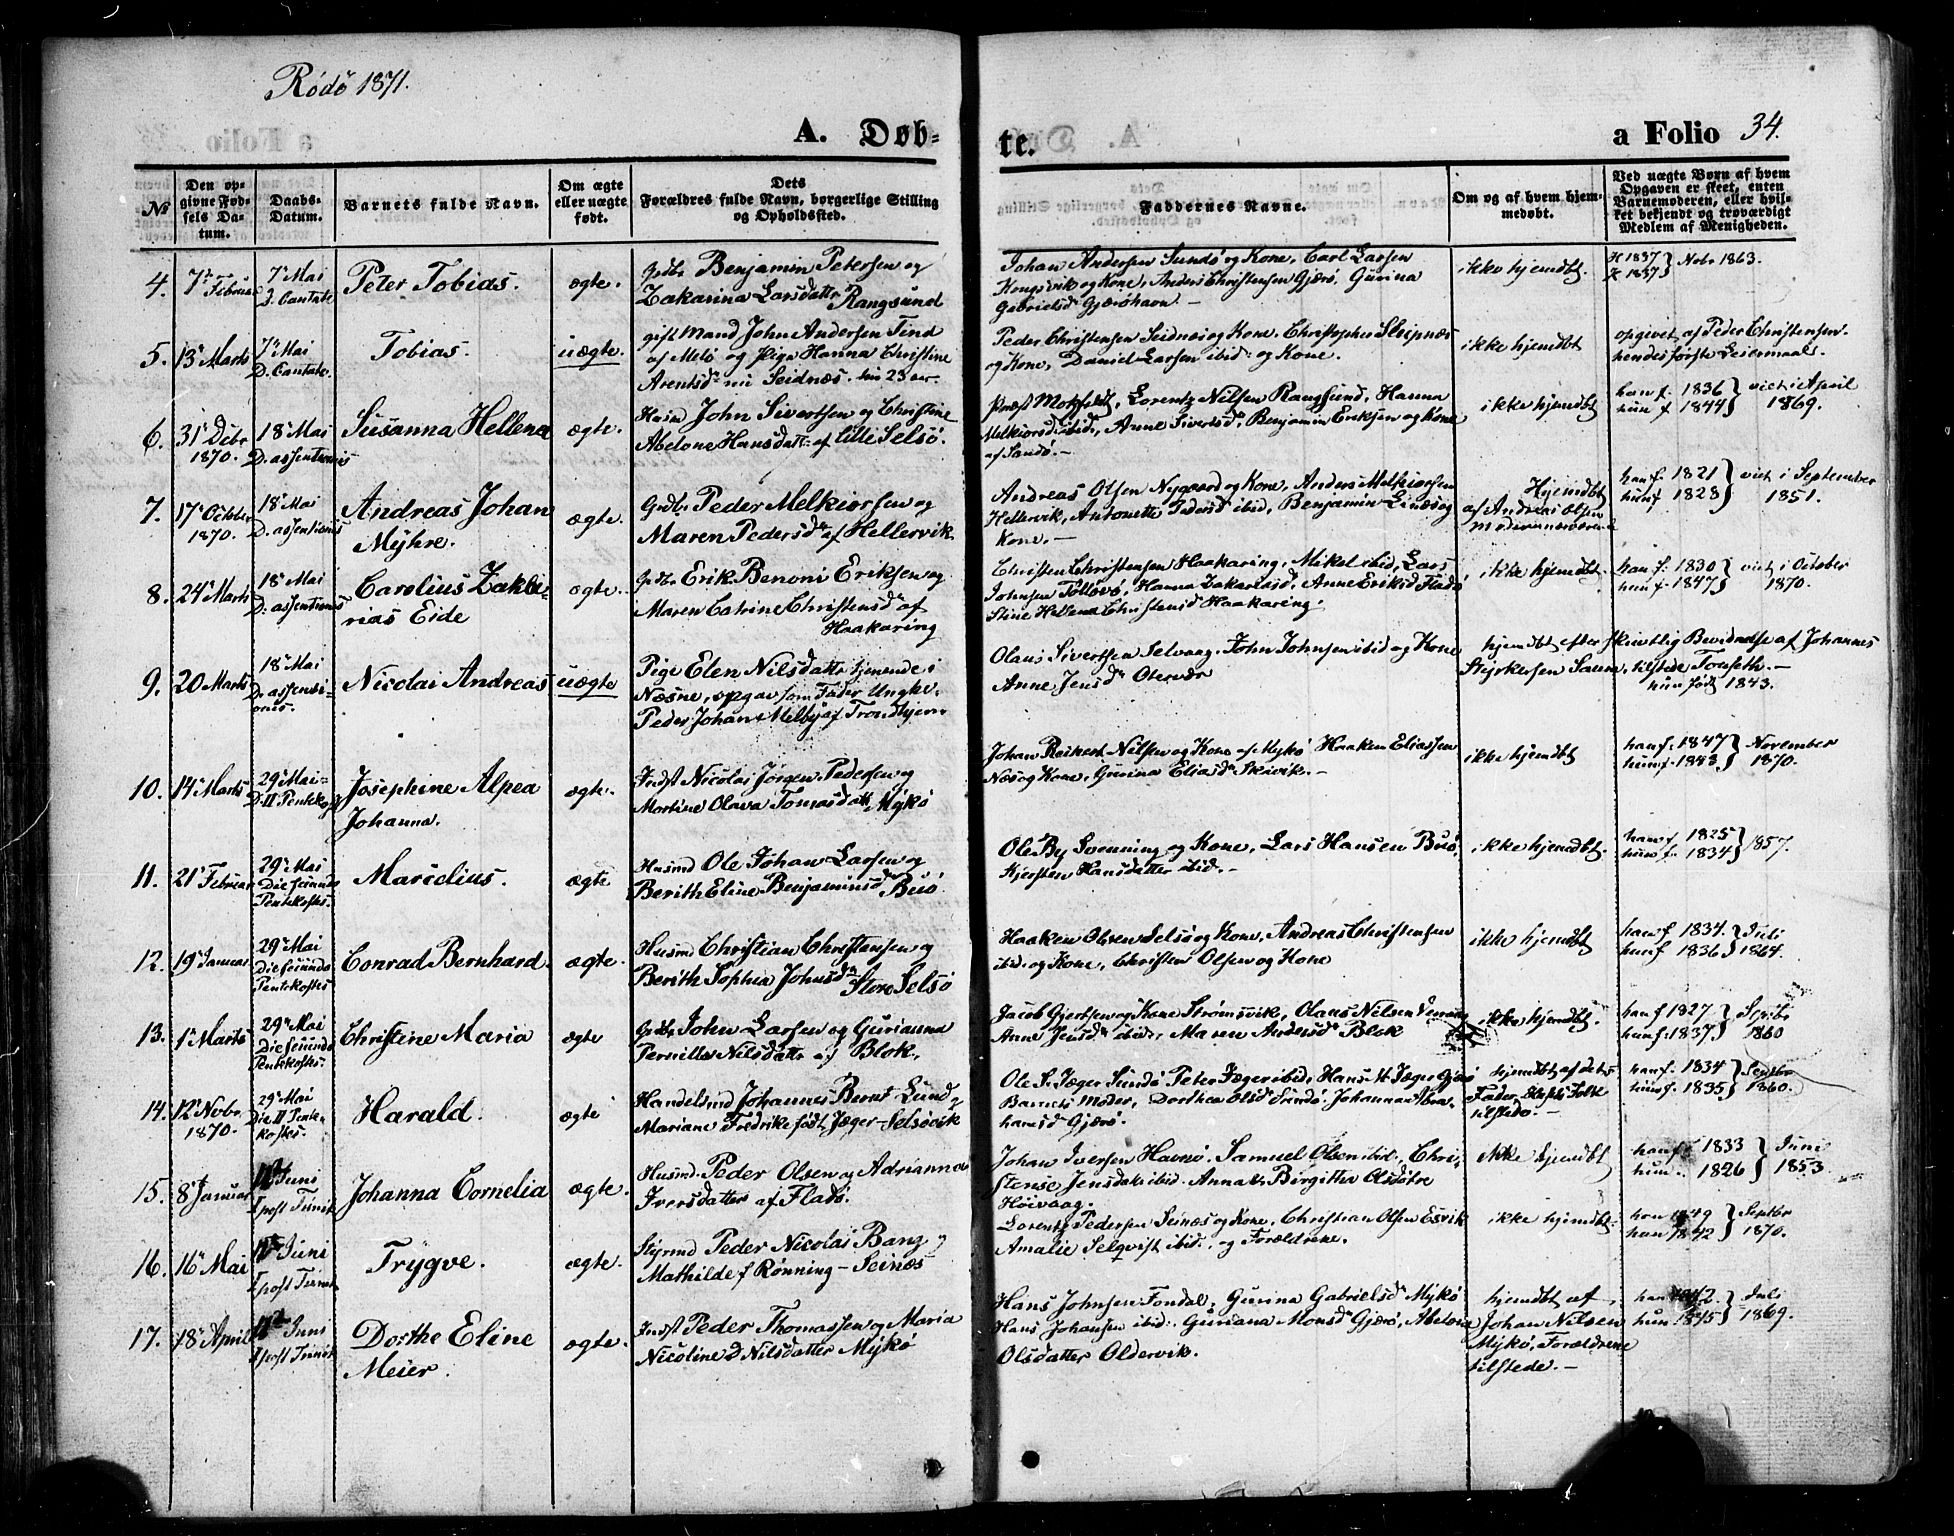 Rödö 1871.
A. Døb-
te.
a Folio 34.
№
Den op-
givne Fød-
sels Da-
tum.
Daabs-
Datum.
Barnets fulde Navn.
Om ægte
eller uægte
født.
Dets
Forældres fulde Navn, borgerlige Stilling
og Opholdssted.
Faddernes Navne.
Om og af hvem hjem-
medøbt.
Ved uægte Børn af hvem
Opgaven er skeet, enten
Barnemoderen, eller hvil-
ket bekjendt og troværdigt
Medlem af Menigheden.
4.
7de Februar
7de Mai
D. Cantate
Peter Tobias.
ægte.
Gdbr Benjamin Petersen og
Zakarina Larsdatter Rangsund
Johan Andersen Sundö og Kone, Carl Larsen
Kongsvik og Kone, Anders Christensen Gjærö, Gurina
Gabrielsd Gjæröhavn –
ikke hjemdbt.
1837
1837
Nobr 1863.
5.
13de Marts
7de Mai
D. Cantate.
Tobias.
uægte.
gift Mand John Andersen Tind
af Melö og Pige Hanna Christine
Arentsdr Seidnæs. hun 23 aar.
Peder Christensen Seidnæs og Kone, Christopher Sleipnæs
og Kone, Daniel Larsen ibid: og Kone.
ikke hjemdbt
opgivet af Peder Christensen.
hendes förste Leiermaal.
6.
31te Debr
1870.
18de Mai
D. assentionis
Susanna Hellena
ægte.
Husmd John Sivertsen og Christine
Abelone Hansdatter af lille Selsö.
Præst Motzfeldt, Lorentz Nilsen Rangsund, Hanna
Melkiorsd ibid:, Anne Sivertsd, Benjamin Eriksen og Kone
af Sandö. –
ikke hjemdbt
han f. 1836
hun f 1844
viet i April
1869.
7.
17de October
1870.
18de Mai
D. assentionis
Andreas Johan
Mÿhre.
ægte.
Gdbr Peder Melkiorsen og
Maren Pedersdr af Hellervik.
Andreas Olsen Nygaard og Kone, Anders Melkiorsen
Hellervik, Antonette Pedersd ibid, Benjamin Lindås og
Kone. –
Hjemdbt
af Andreas Olsen
han f. 1821
hun f 1823
viet i September
1851.
8.
24de Marts
18de Mai
D. assentionis
Carolius Zakke-
rias Eide
ægte.
Gdbr Erik Benoni Eriksen og
Maren Catrine Christensdr af
Haakaring
Christen Christensen Haakaring, Mikel ibid, Lars
Johnsen Tollövö, Hanna Zakariasd, Anne Eriksd Fladö
Stine Hellena Christensd Haakaring.
ikke hjemdbt.
han f. 1830
hun f. 1847
viet i October
1870.
9.
20 Marts
18de Mai
D. assensi-
onis.
Nicolai Andreas
uægte
Pige Elen Nilsdatter tjenende i
Næsne, opgav som Fader Ungke.
Peder Johan Melby af Trondhjem
Olaus Sivertsen Selvaag. John Johnsen ibid og Kone
Anne Jensdr Otervær
hjemdbt efter skriftlig Bevidnelse af Johannes
Styrkersen Saura, tilstede Tonseth. –
hun födt 1843.
10.
14de Marts
29de Mai
D. II Pentekost
Josephine Alpea
Johanna.
ægte.
Indst Nicolai Jörgen Pedersen og
Martine Olava Tomasdatt Mÿkö
Johan Reinert Nilsen og Kone af Mykö Haaken Eliassen
Næs og Kone, Gurina Eliasd Skivik. –
ikke hjemdbt
han f. 1847
hun f. 1843
November
1870.
11.
21de Februar
29de Mai
Die secunda
Pentekostes.
Marcelius.
ægte
Husmd Ole Johan Larsen og
Berith Eline Benjaminsdr Buö.
Ole By Svenning og Kone, Lars Hansen Buö,
Kjersten Hansdatter ibid. –
ikke hjemdbt.
han f. 1825
hun f. 1834
1857.
12.
19de Januar
29de Mai
Die secunda
Pentekostes
Conrad Bernhard.
ægte.
Husmd Christian Christensen og
Berith Sophia Johnsdr
Store Selsö
Haaken Olsen Selsö og Kone, Andreas Christensen
ibid: og Kone, Christen Olsen og Kone
ikke hjemdbt
han f. 1834.
hun f 1836
Juli
1864.
13.
1te Marts
29de Mai
Die secunda
Pentekostes.
Christine Maria
ægte
Gdbr John Larsen og Gurianna
Pernille Nilsdatter af Blok.
Jacob Gjertsen og Kone Strömsvik, Olaus Nilsen
Anne Jensdr ibid:, Maren Andersdr Blok
ikke hjemdbt.
han f 1827
han f. 1837
Septbr
1860
14.
12te Nobr
1870.
29de Mai
Die II Pente-
kostes.
Harald.
ægte
Handelsmd Johannes Bernt Lund og
Mariane Fredrike födt Jæger – Selsövik
Ole S. Jæger Sundö Peter Jæger ibid, Hans M Jæger Gjærö
Barnets Moder, Dorthea Olsdr Sundö. Johanna Abra-
hamsd Gjærö.
hjemdbt af dets
Fader, Husets Folk
tilstede. –
han f. 1834
hun f. 1835
Septbr
1860.
15.
8de Januar
Juni
I post Trinit
Johanna Cornelia
ægte.
Husmd Peder Olsen og Adrianna
Iversdatter af Fladö.
Johan Iversen Havnö. Samuel Olsen ibid., Chri-
stense Jensdatt ibid. Anna & Birgitte Olsdötre
Höivaag.
ikke hjemdbt
han f 1833
hun – 1826
Juni
1853.
16.
16de Mai
Juni
I post Trinit
Trÿgve.
ægte.
Styrmd Peder Nicolai Bang og
Mathilde f Rönning – Seinæs
Lorentz Pedersen Seinæs og Kone, Christian Olsen Esvik
Amalie Selqvist ibid., og Forældrene.
ikke hjemdbt.
han 1849
hun 1842
Septbr
1870.
17.
18de April
Juni
I post Trinit
Dorthe Eline
Meier.
ægte.
Indst Peder Thomassen og Maria
Nicoline D Nilsdatter Mÿkö
Hans Johnsen Fondal, Gurina Gabrielsdr Mykö
Hans Johansen ibid. Guriana Monsdr Gjærö, Abelona
Olsdatter Oldervik.
hjemdbt af
Johan Nilsen
Mÿkö, Forældrene
tilstede. –
han 1842.
hun 1845
Juli
1869.